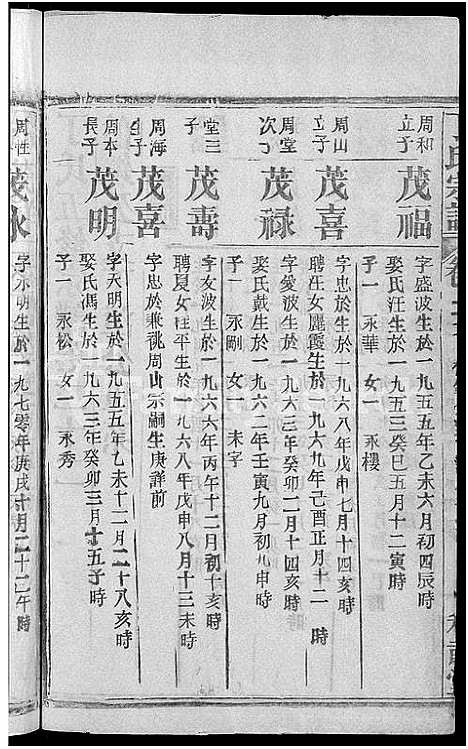 氏宗譜
周和立子
茂福
字盛波生於一九五五年乙未六月初四辰時
娶氏汪生於一九五三癸巳五月十二寅時
子一 永華 女一 永樓
周山立子
茂喜
字忠於生於一九六八年戊申七月十四亥時
聘汪女麗霞生於一九六九年己酉正月十二 時
周堂次子
茂禄
字愛波生於一九六三年癸卯二月十四亥時
娶氏戴生於一九六二年壬寅九月初九申時
子一 永剛 女一 未字
堂三子
茂壽
字友波生於一九六六年丙午十二月初十亥時
聘夏女桂平生於一九六八年戊申八月十三未時
周海生子
茂喜
字忠於兼祧周山宗嗣生庚詳前
周本長子
茂明
字天明生於一九五五年乙未十二月二十八亥時
娶氏馮生於一九六三年癸卯三月十五子時
子一 永松 女一 永秀
周性
茂永
字 明生於一九七零年庚戌十月二十二午時